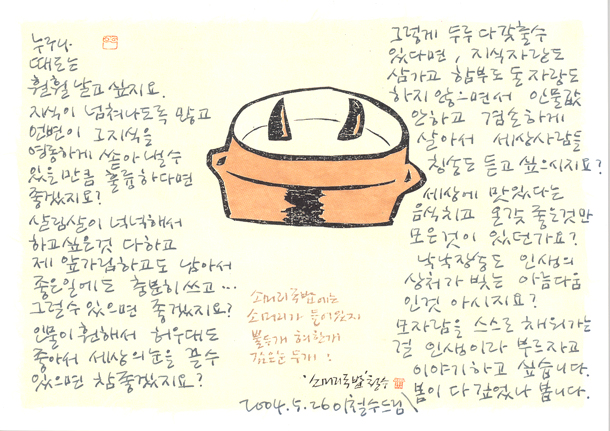 누구나
때로는
훨훨 날고 싶지요.
지식이 넘쳐나도록 많고
언변이 그 지식을
영롱하게 쏟아 낼 수
있을 만큼 훌륭하다면
좋겠지요?
살림살이 넉넉해서
하고 싶은 것 다하고
제 앞가림하고도 남아서
좋은 일에도 충분히 쓰고…
그럴 수 있으면 좋겠지요?
인물이 훤해서 허우대도
좋아서 세상의 눈을 끌 수
있으면 참 좋겠지요?
그렇게 두루 다 갖출 수
있다면, 지식 자랑도
삼가고 함부로 돈 자랑도
하지 않으면서 인물값
안하고 겸손하게
살아서 세상 사람들
칭송도 듣고 싶으시지요?
세상에 맛있다는
음식치고 온갖 좋은 것만
모은 것이 있던가요?
낙낙장송도 인생의
상처가 빚는 아름다움
인 것 아시지요?
모자람을 스스로 채워가는
걸 인생이라 부르자고
이야기하고 싶습니다.
봄이 다 깊었나 봅니다.
소머리국밥에는
소머리가 들어있지
뿔 두개 허연거
검은 눈 두개 :
'소머리국밥' 철수
2004.5.26 이철수 드림